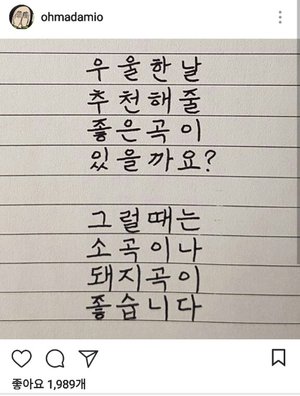 ohmadamio
우울한날
추천해줄
좋은곡이
있을까요?
그럴때는
소곡이나
돼지곡이
좋습니다
좋아요 1,989개